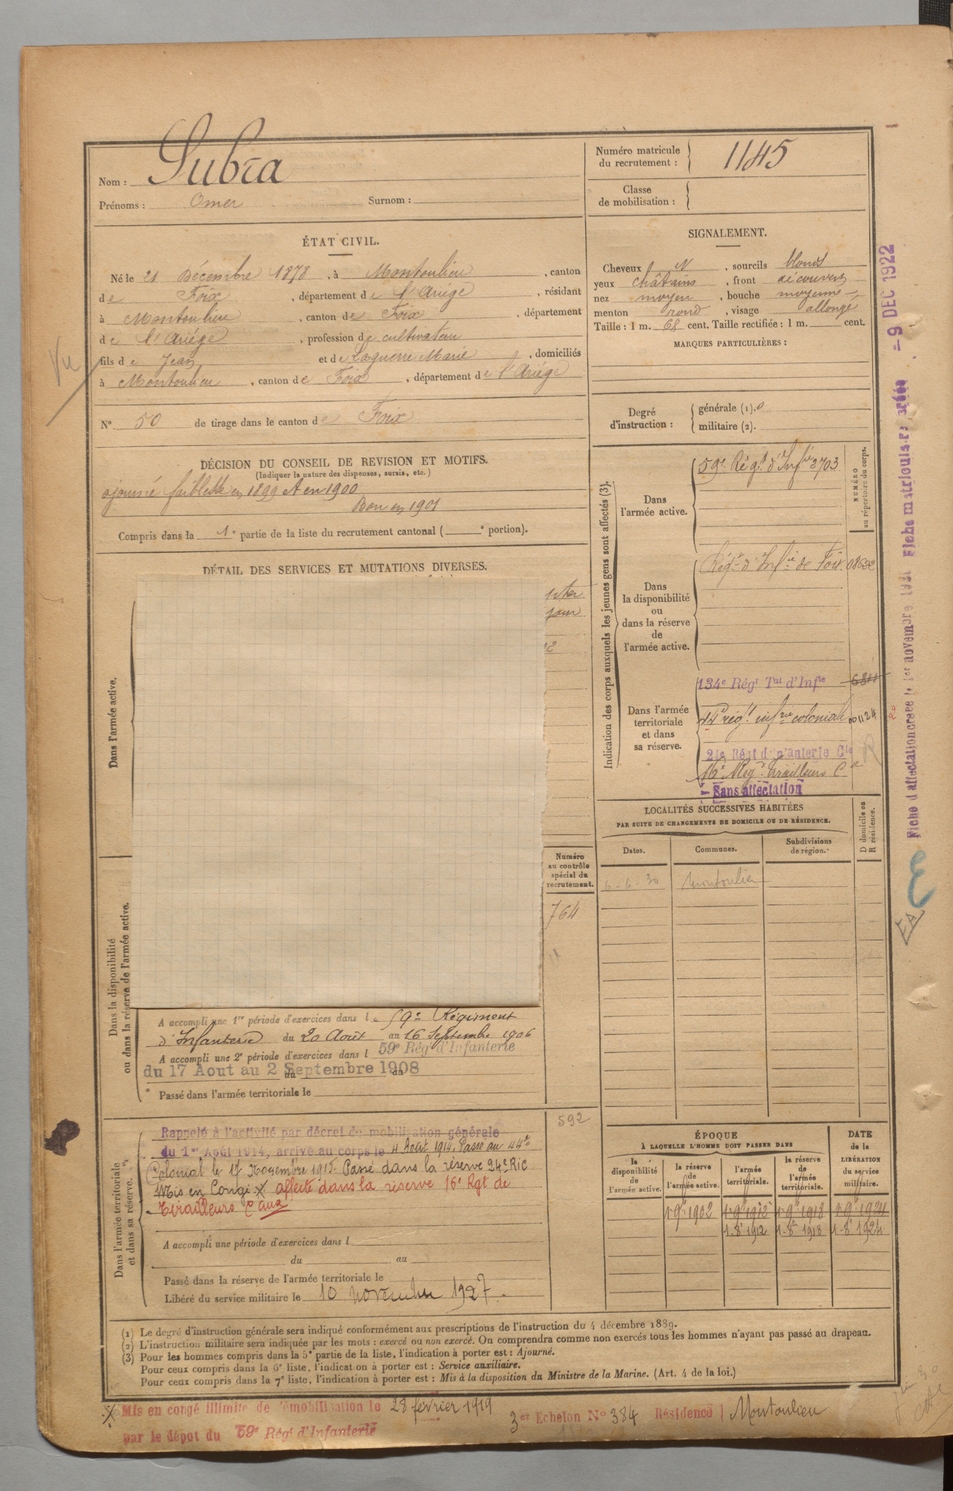 Subra
Nom :
Prénoms : Omer Surnom :
Numéro matricule du recrutement : 1145
Classe de mobilisation :
ÉTAT CIVIL.
Né le 21 Décembre 1878, à Montoulieu, canton
de Foix, département de l'Ariège, résidant
à Montoulieu, canton de Foix, département
de l'Ariège, profession de cultivateur
fils de Jean et de Laguerre Marie, domiciliés
à Montoulieu, canton de Foix, département de l'Ariège
Vu
N° 50 de tirage dans le canton de Foix
SIGNALEMENT.
Cheveux, sourcils blonds
yeux châtains, front découvert
nez moyen, bouche moyenne
menton rond, visage allongé
Taille : 1 m. 68 cent. Taille rectifiée : 1 m. cent.
MARQUES PARTICULIÈRES :
Degré d'instruction : générale (1).
militaire (2).
DÉCISION DU CONSEIL DE REVISION ET MOTIFS.
(Indiquer la nature des dispenses, sursis, etc.)
ajourné faiblesse en 1899 et en 1900
Bon en 1901
Compris dans la 1e partie de la liste du recrutement cantonal ( e portion).
DÉTAIL DES SERVICES ET MUTATIONS DIVERSES.
Dans l'armée active.
Dans la disponibilité
ou dans la réserve de l'armée active.
Numéro
au contrôle
spécial du
recrutement.
764
A accompli une 1re période d'exercices dans le 59e Régiment
d'Infanterie du 20 Août au 16 Septembre 1906
A accompli une 2e période d'exercices dans l 59e Régt d'Infanterie
du 17 Aout au 2 Septembre 1908
Passé dans l'armée territoriale le
Dans l'armée territoriale
et dans sa réserve.
592
Rappelé à l'activité par décret de mobilisation générale
du 1er Août 1914, arrivé au corps le 4 Août 1914. Passé au 44e
Colonial le 17 Novembre 1915. Passé dans la réserve 24e RIC
Mis en Congé X affecté dans la réserve 16e Rgt de
Tirailleurs
A accompli une période d'exercices dans l
du au
Passé dans la réserve de l'armée territoriale le
Libéré du service militaire le 10 novembre 1927.
Indication des corps auxquels les jeunes gens sont affectés (3).
NUMÉRO
au répertoire du corps.
Dans
l'armée active.
59e Régt d'Infie 3703
Dans
la disponibilité
ou
dans la réserve
de
l'armée active.
Régt d'Infie de Foix
Dans l'armée
territoriale
et dans
sa réserve.
134e Régt Tal d'Infie
régt infrie coloniale
24e Régt d'infanterie Cle
16e Régt Tirailleurs
Sans affectation
LOCALITÉS SUCCESSIVES HABITÉES
PAR SUITE DE CHANGEMENTS DE DOMICILE OU DE RÉSIDENCE.
Dates. Communes. Subdivisions de région. D domicile ou R résidence.
6-6-30 Montoulieu
ÉPOQUE
À LAQUELLE L'HOMME DOIT PASSER DANS
DATE
de la
LIBÉRATION
du service
militaire.
la disponibilité de l'armée active. la réserve de l'armée active. l'armée territoriale. la réserve de l'armée territoriale.
1-9e 1902 1-9e 1912 1-9e 1918 1-9e 1924
1-8e 1912 1-8e 1918 1-8e 1924
(1) Le degré d'instruction générale sera indiqué conformément aux prescriptions de l'instruction du 4 décembre 1889.
(2) L'instruction militaire sera indiquée par les mots : exercé ou non exercé. On comprendra comme non exercés tous les hommes n'ayant pas passé au drapeau.
(3) Pour les hommes compris dans la 5e partie de la liste, l'indication à porter est : Ajourné.
Pour ceux compris dans la 6e liste, l'indication à porter est : Service auxiliaire.
Pour ceux compris dans la 7e liste, l'indication à porter est : Mis à la disposition du Ministre de la Marine. (Art. 4 de la loi.)
X Mis en congé illimité de démobilisation le 28 février 1919
par le dépôt du 59e Régt d'Infanterie
3e Echelon N° 384 Résidence Montoulieu
Fiche d'affectation créée le 1er novembre 1921 Fiche matriculaire créée - 9 DEC 1922